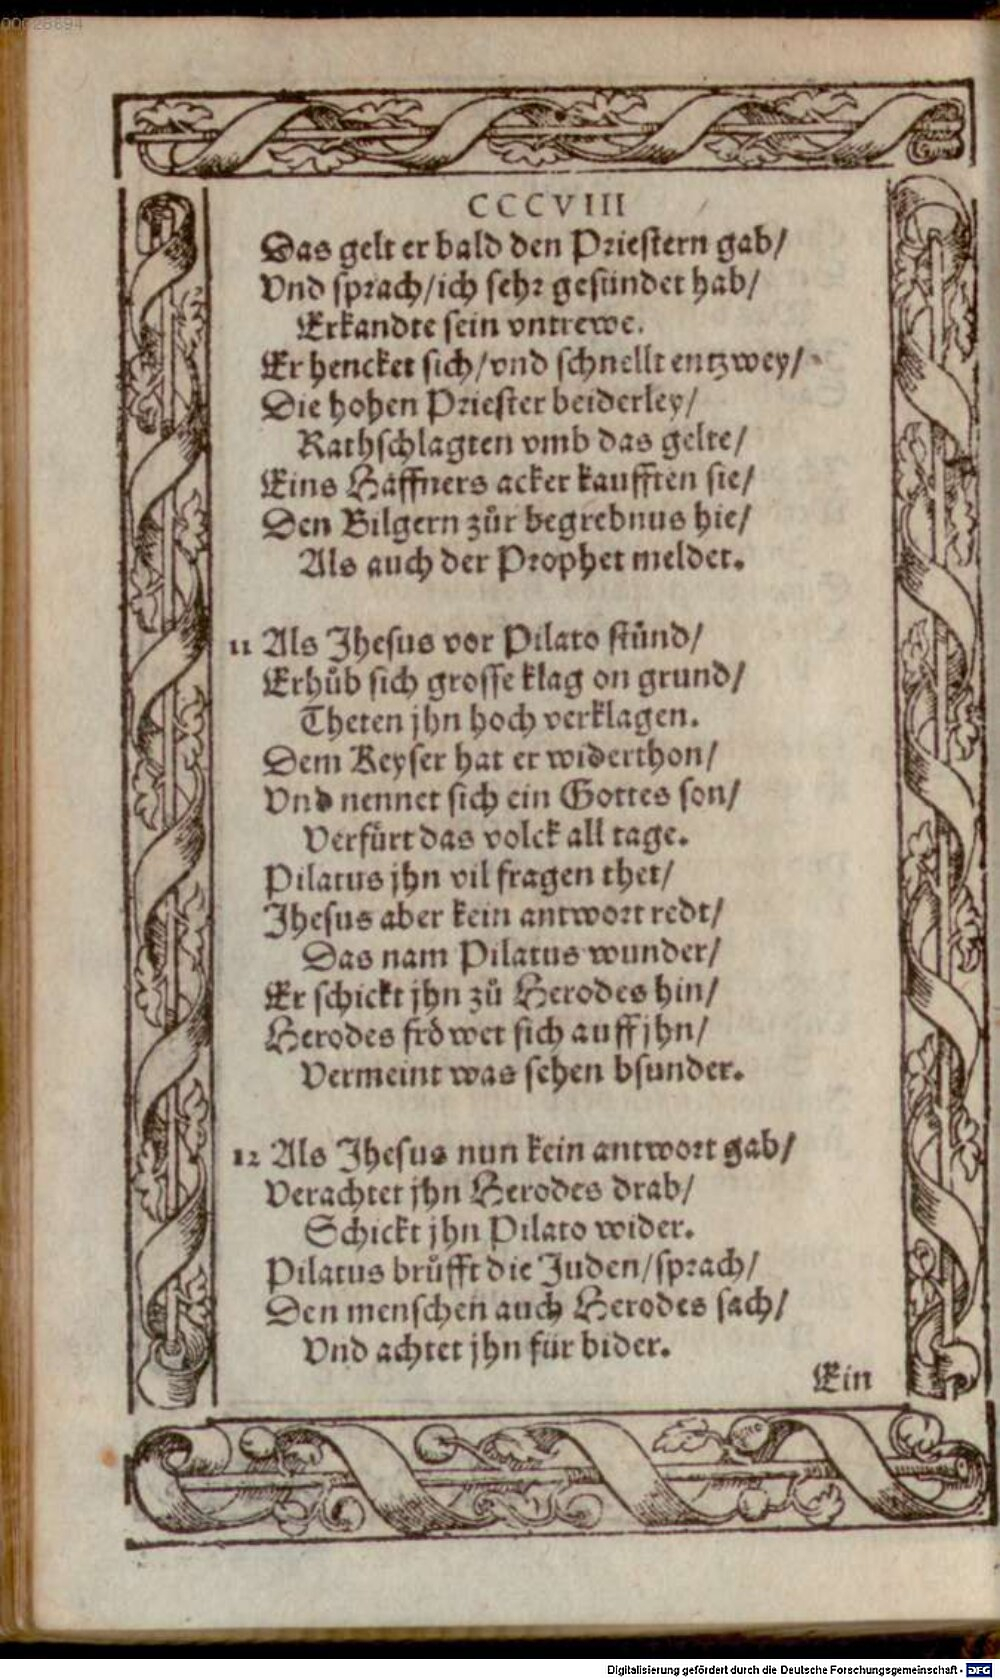 00028894
CCCVIII
Das gelt er bald den Priestern gab/
Vnd sprach/ich sehr gesündet hab/
Erkandte sein vntrewe.
Er hencket sich/vnd schnellt entzwey/
Die hohen Priester beiderley/
Rathschlagten vmb das gelte/
Eins Häffners acker kaufften sie/
Den Bilgern zůr begrebnus hie/
Als auch der Prophet meldet.
11 Als Jhesus vor Pilato stůnd/
Erhůb sich grosse klag on grund/
Theten jhn hoch verklagen.
Dem Keyser hat er widerthon/
Vnd nennet sich ein Gottes son/
Verfürt das volck all tage.
Pilatus jhn vil fragen thet/
Jhesus aber kein antwort redt/
Das nam Pilatus wunder/
Er schickt jhn zů Herodes hin/
Herodes fröwet sich auff jhn/
Vermeint was sehen bsunder.
12 Als Jhesus nun kein antwort gab/
Verachtet jhn Herodes drab/
Schickt jhn Pilato wider.
Pilatus brůfft die Juden/sprach/
Den menschen auch Herodes sach/
Vnd achtet jhn für bider.
Ein
Digitalisierung gefördert durch die Deutsche Forschungsgemeinschaft - DFG